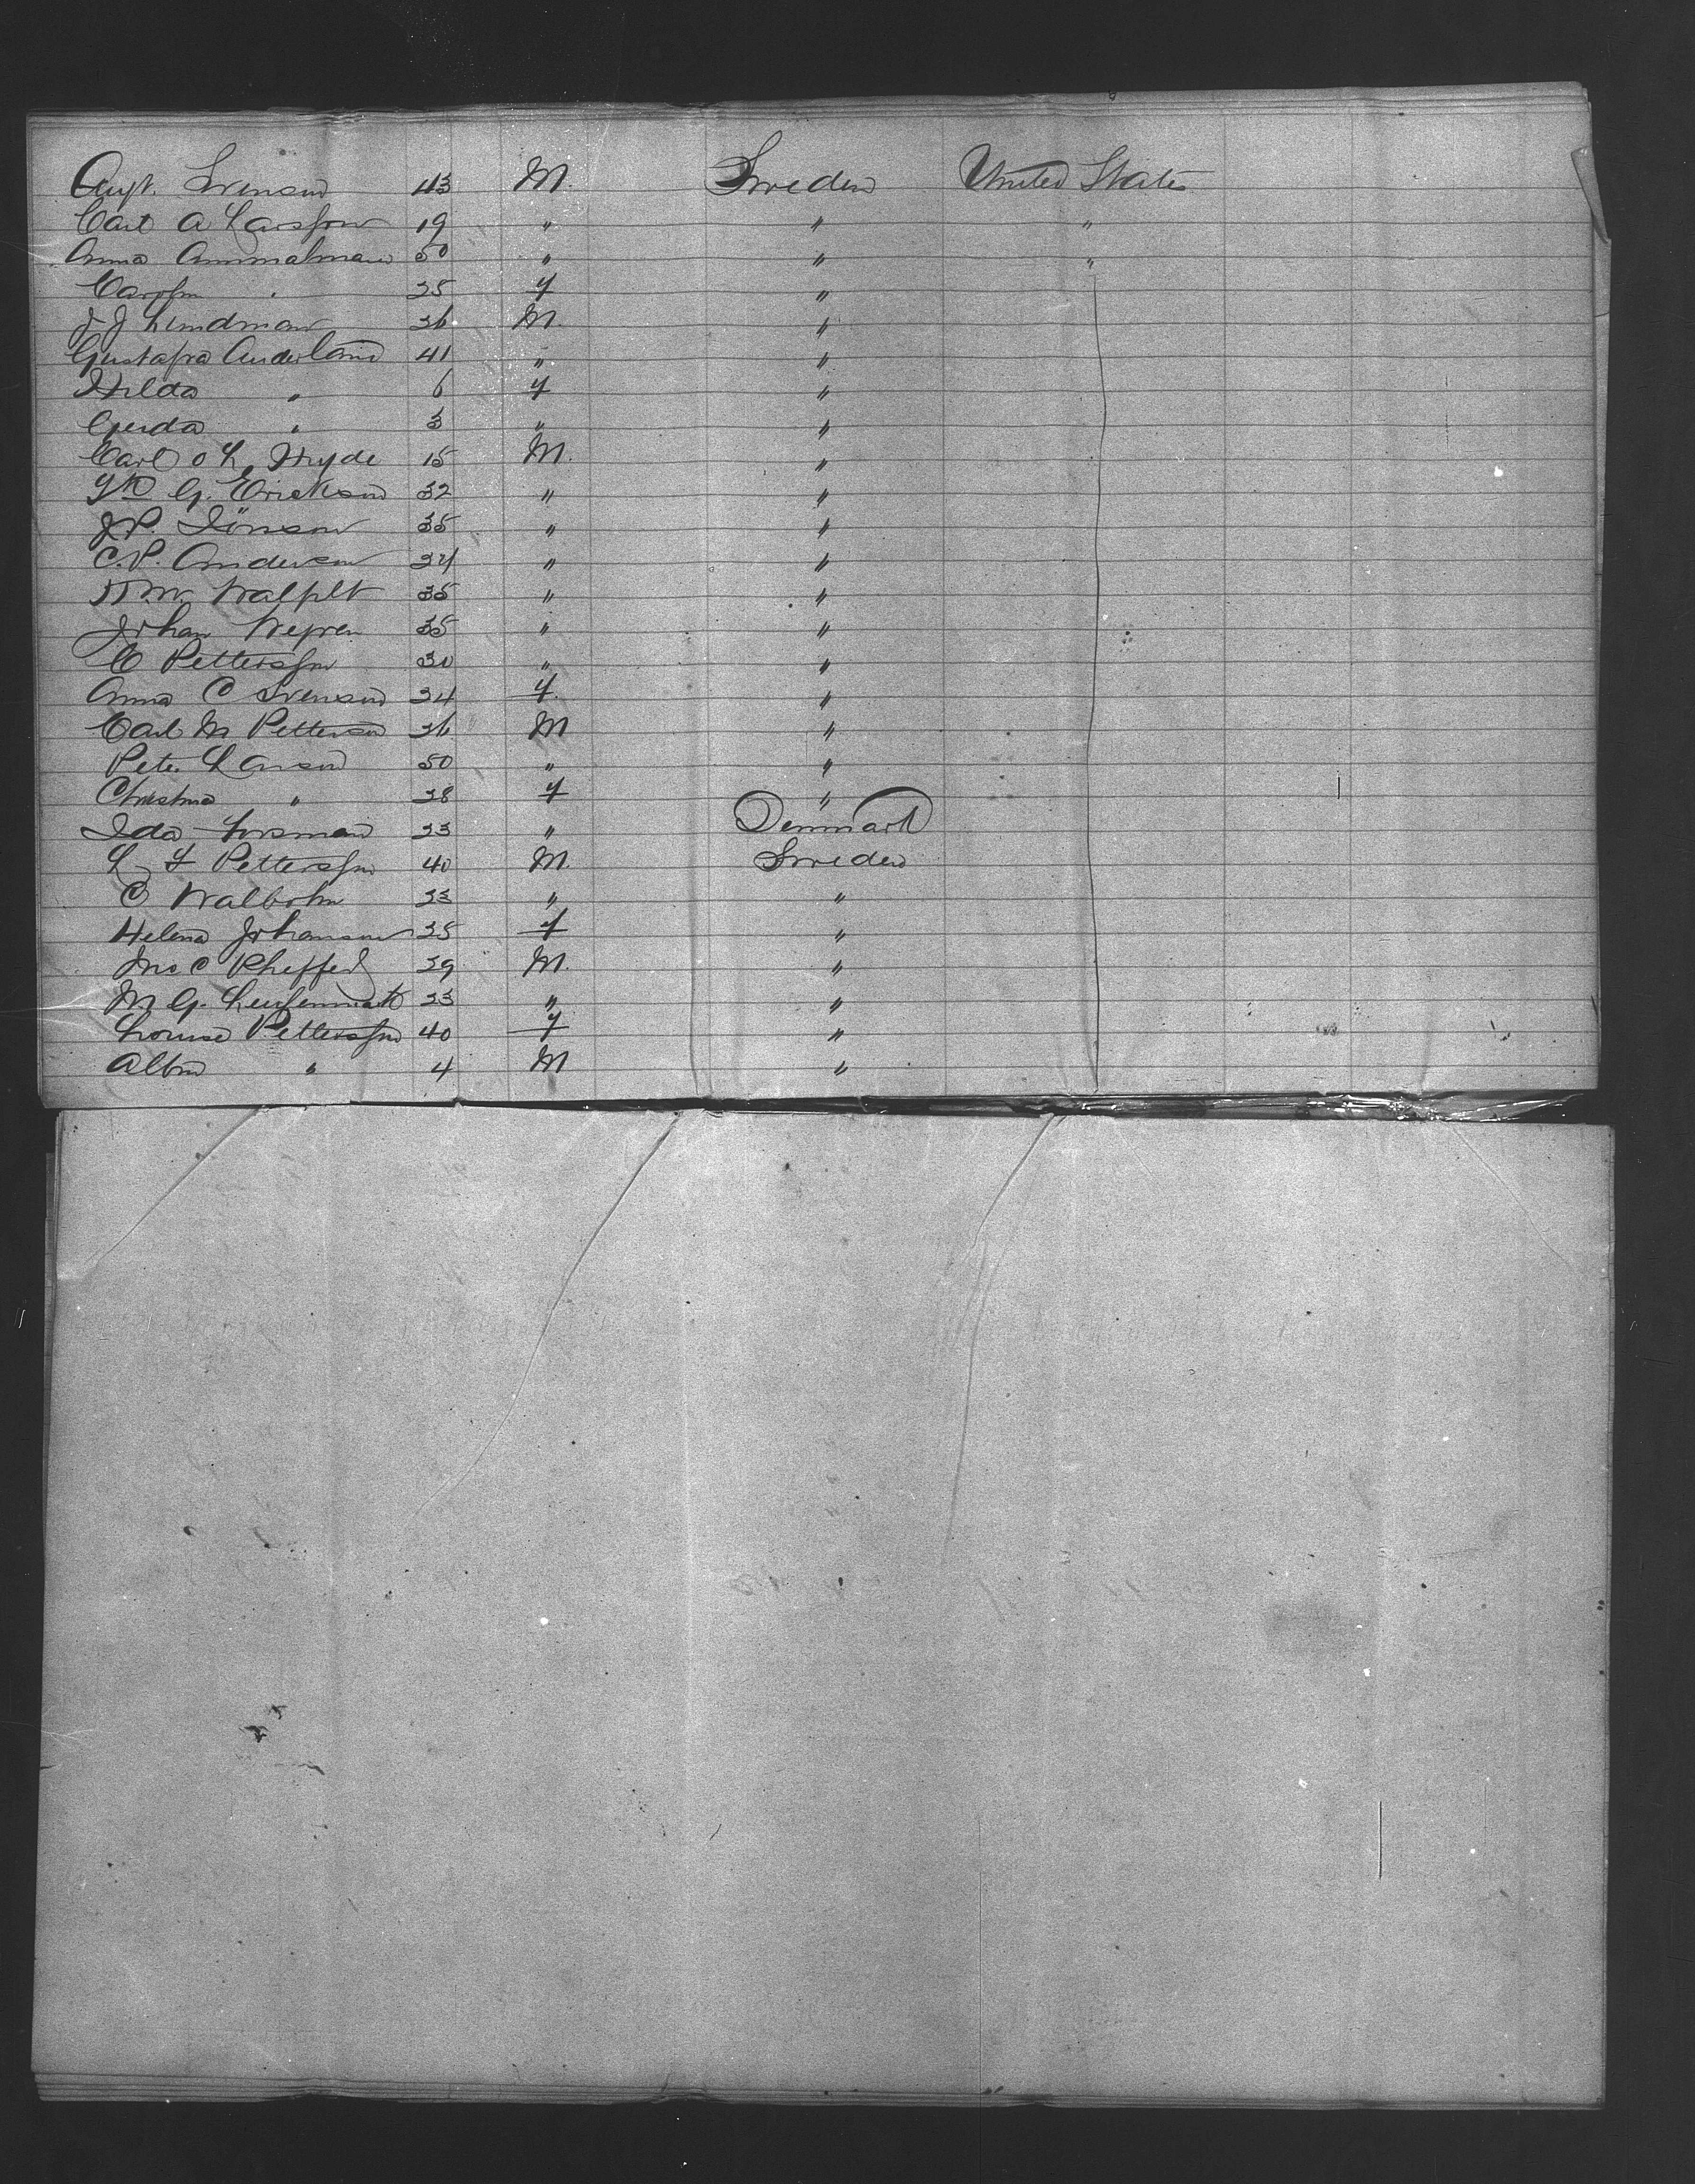 Augt. Svenson 43 M. Sweden United States
Carl A Larsson 19 " " "
Anna Ammalman 50 " " "
Carolin " 25 f "
J J Lindman 26 M. "
Gustafva Anderland 41 " "
Hilda " 6 f "
Gerda " 3 " "
Carl O L Hyde 15 M. "
G. Erickson 32 " "
J P. Jönson 35 " "
C. P. Anderson 24 " "
35 " "
Johan 35 " "
C Pettersson 30 " "
Anna C Svenson 24 f. "
Carl M Petterson 26 M "
Peter Larson 50 " "
Christina " 28 f "
Ida Forsman 23 " Denmark
L F Pettersson 40 M. Sweden
C Walbohm 23 " "
Helena Johanson 25 f "
Jno C 29 M. "
M G. 23 " "
Louise Pettersson 40 f "
Albin " 4 M "